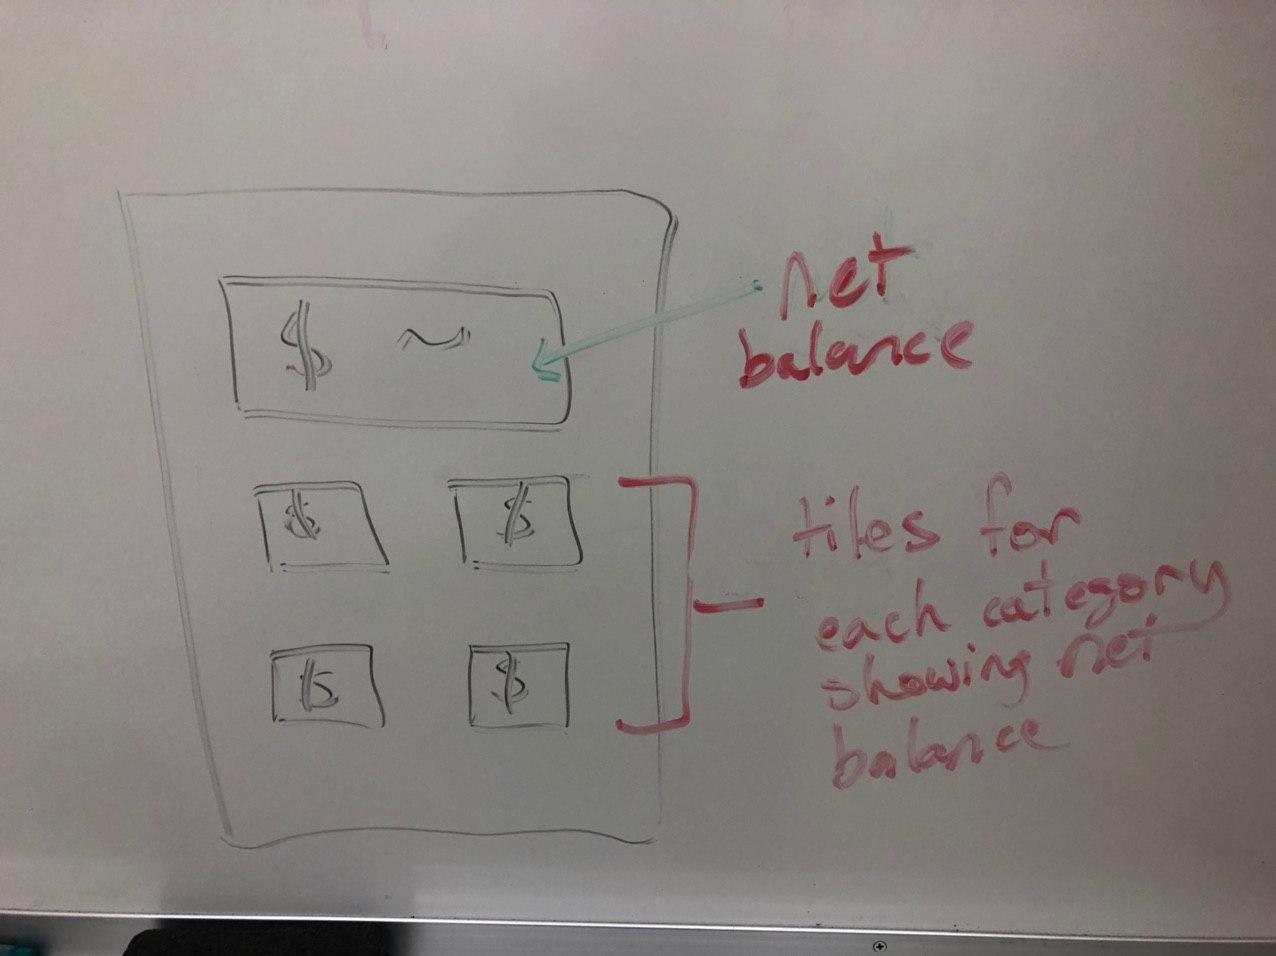 $ ~
net
balance
$ $
$ $
tiles for
each category
showing net
balance